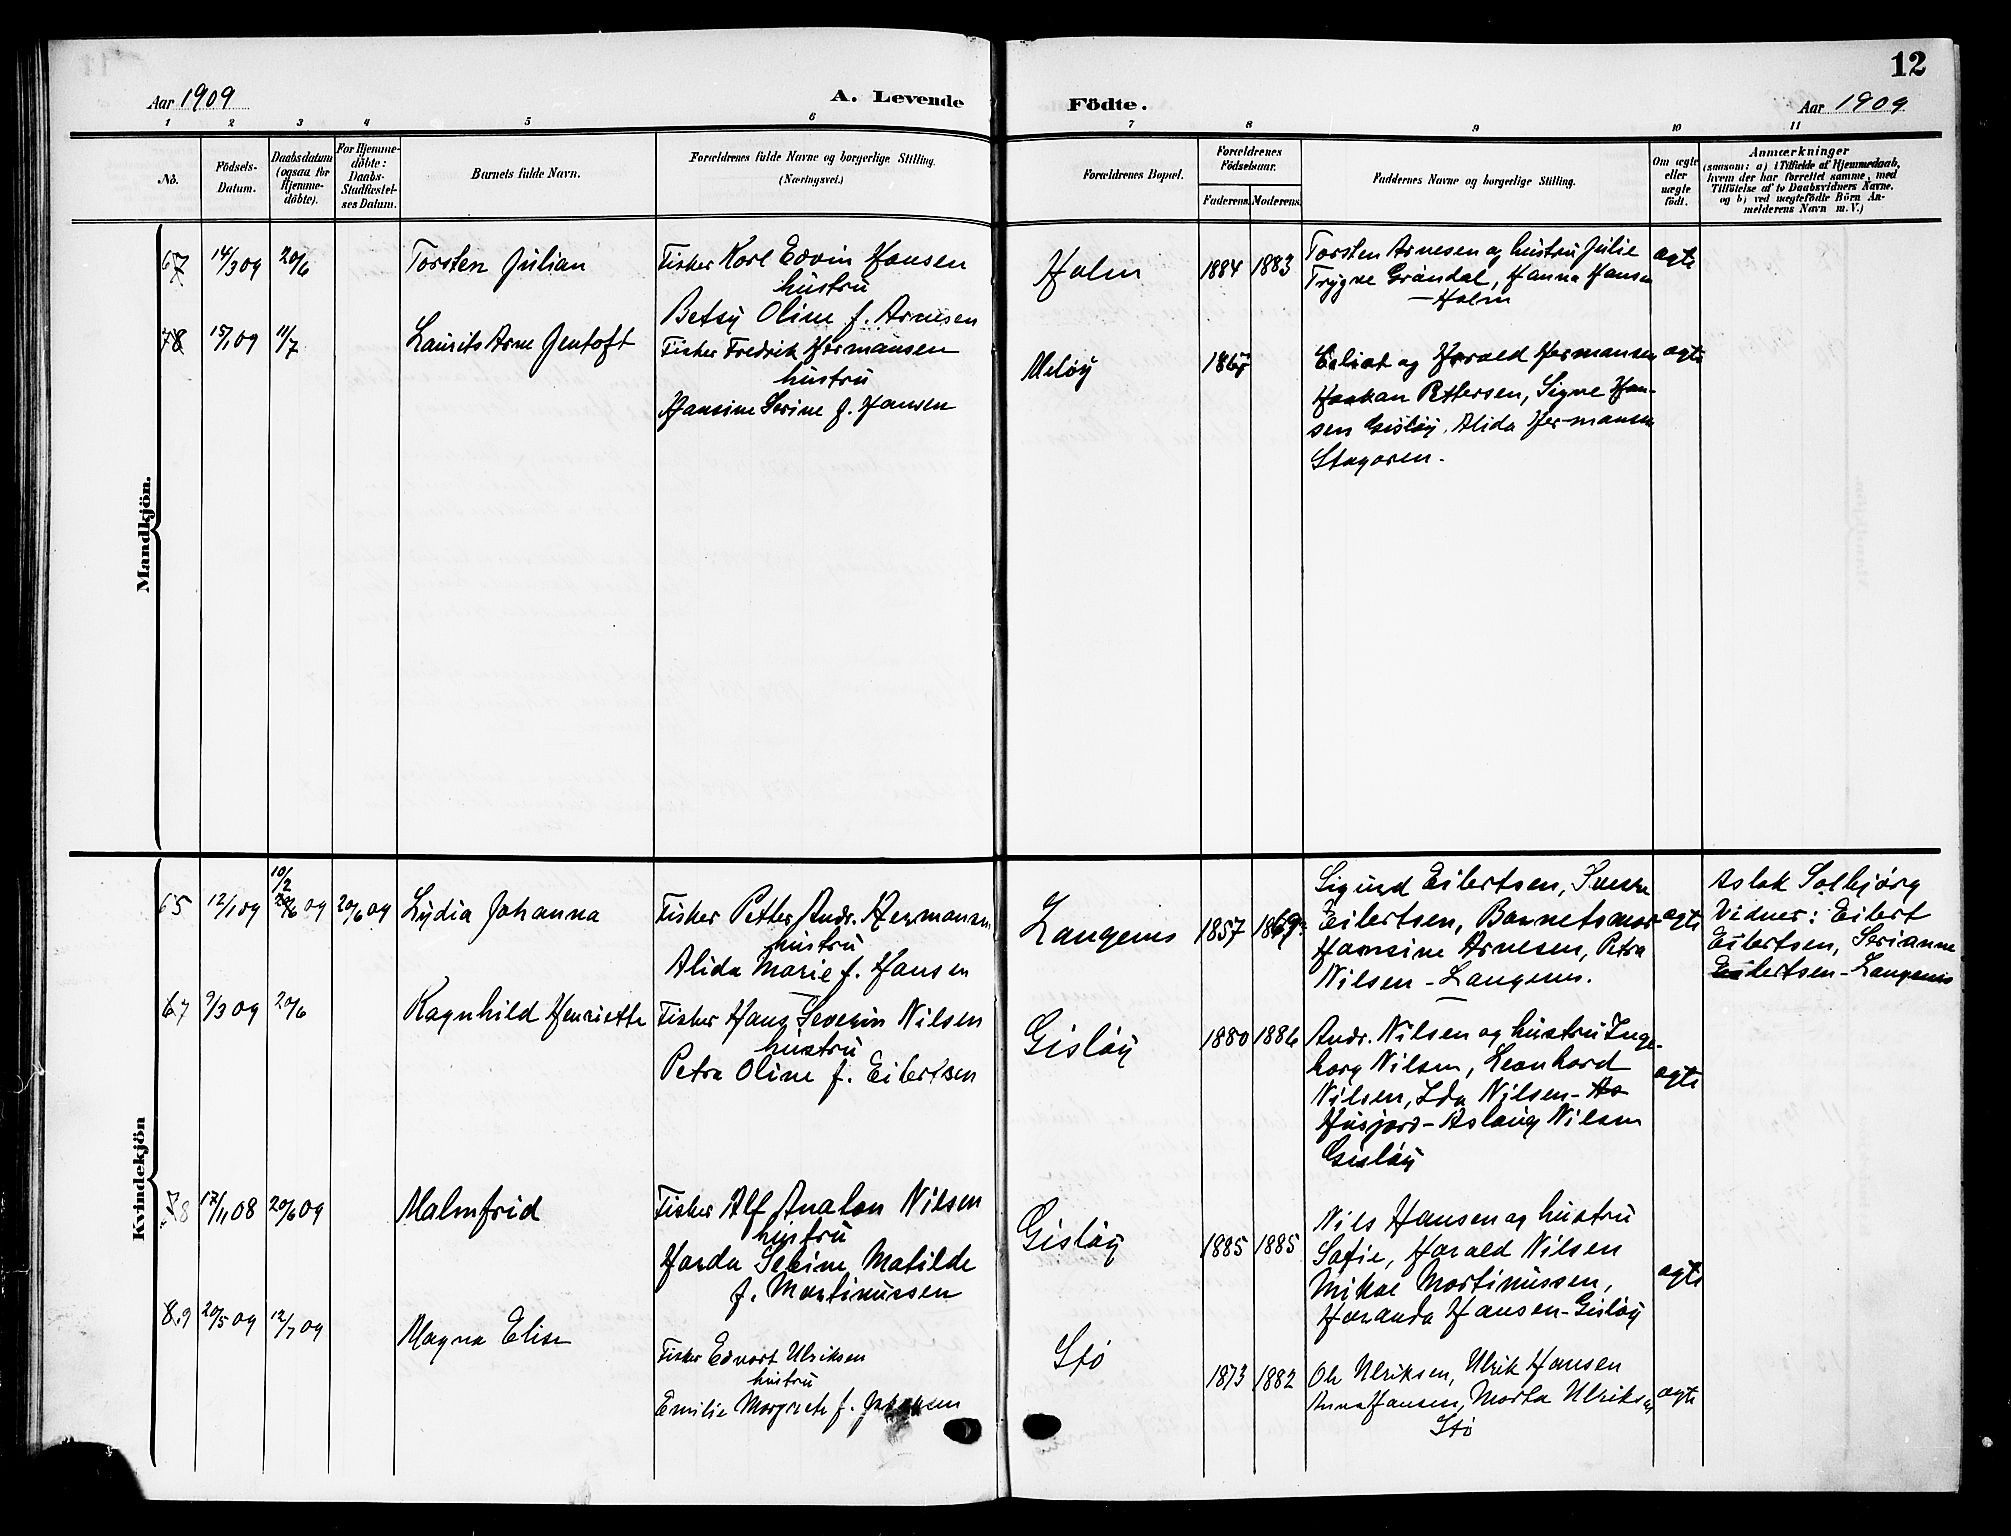 12
Aar 1909
A. Levende
Födte.
Aar 1909
1 2 3 4 5 6 7 8 9 10 11
No.
Födsels-
Datum.
Daabsdatum
(ogsaa for
Hjemme-
döbte).
For Hjemme-
döbte:
Daabs-
Stadfæstel-
ses Datum.
Barnets fulde Navn.
Forældrenes fulde Navne og borgerlige Stilling.
(Næringsvei.)
Forældrenes Bopæl.
Forældrenes
Födselsaar.
Faderens. Moderens.
Faddernes Navne og borgerlige Stilling.
Om ægte
eller
uægte
födt.
Anmærkninger
(saasom: a) i Tilfælde af Hjemmedaab,
hvem der har forrettet samme, med
Tilföielse af to Daabsvidners Navne.
og b) ved uægtefödte Börn An-
melderens Navn m. V.)
Mandkjön.
67 14/3 09 20/6 Torsten Julian
Fisker Karl Edvin Hansen
hustru
Betsy Oline f. Arnesen
Holm 1884 1883
Torsten Arnesen og hustru Julie
Trygve Gröndal, Hanna Hansen
- Holm
ægte
78 15/1 09 11/7 Laurits Arne Jentoft
Fisker Fredrik Hermansen
hustru
Hansine Serine f. Hansen
Meløy
og Harald Hermansen
Haakan Pettersen, Signe Han-
sen Gisløy, Alida Hermansen
ægte
Kvindekjön
65 12/1 09 10/2 20/6 09 20/6 09 Lydia Johanna
Fisker Petter Andr. Hermansen
hustru
Alida Marie f. Hansen
Langenes 1857 1869
Sigurd Eilertsen,
Eilertsen, Barnets mor
Hansine Arnesen, Petra
Nilsen - Langenes.
ægte
Aslak Solbjörg
Vidner: Eilert
Eilertsen, Serianne
Eilertsen - Langenes
67 9/3 09 20/6 Ragnhild Henriette
Fisker Hans Severin Nilsen
hustru
Petra Oline f. Eilertsen
Gisløy 1880 1886
Andr. Nilsen og hustru Inge-
borg Nilsen, Leonhard
Nilsen, Ida Nilsen - As
Husjord - Aslaug Nilsen
Gisløy
ægte
78 17/11 08 20/6 09 Malmfrid
Fisker Alf Analon Nilsen
hustru
Harda Sebine Matilde
f. Martinussen
Gisløy 1885 1885
Nils Hansen og hustru
Sofie, Harald Nilsen
Mikal Martinussen,
Haranda Hansen - Gisløy
ægte
89 20/5 09 12/7 09 Magna Elise
Fisker Edvart Ulriksen
hustru
Emilie Margrete f.
Stø 1873 1882
Ole Ulriksen, Ulrik Hansen
Anna Hansen, Marta Ulriksen
Stø
ægte